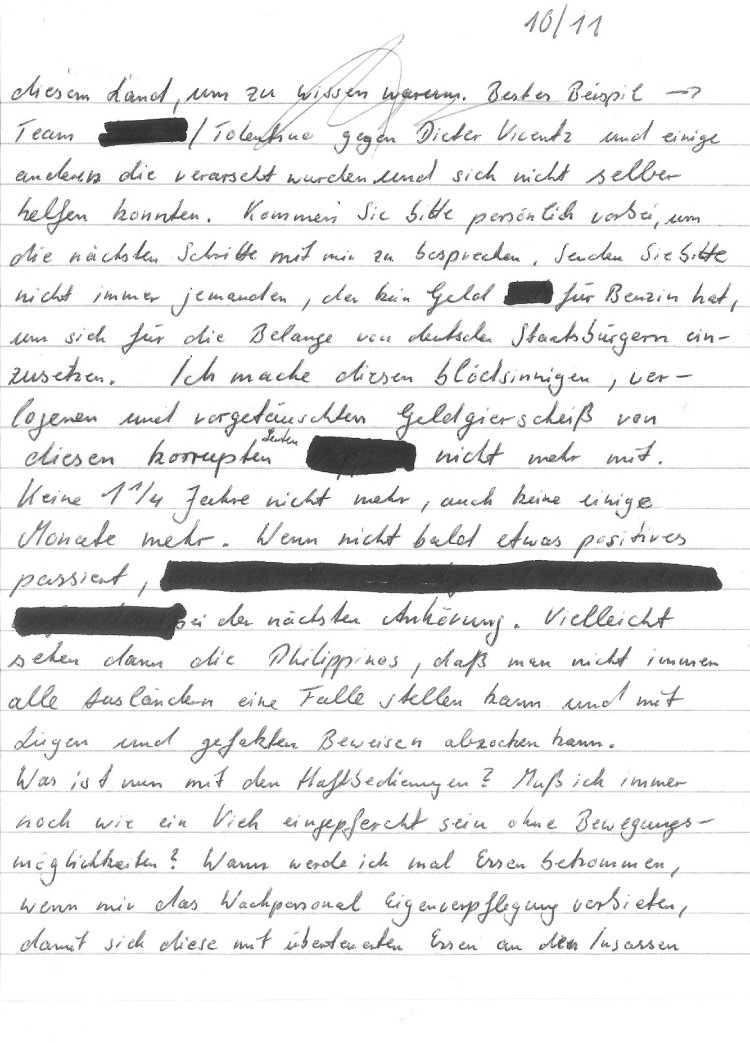 10/11
diesem Land, um zu wissen warum. Bestes Beispil →
Team / Tolentino gegen Dieter Vicentz und einige
anderen die verarscht wurden und sich nicht selber
helfen konnten. Kommen Sie bitte persönlich vorbei, um
die nächsten Schritte mit mir zu besprechen. Senden Sie bitte
nicht immer jemanden, der kein Geld für Benzin hat,
um sich für die Belange von deutschen Staatsbürgern ein-
zusetzen. Ich mache diesen blödsinnigen, ver-
logenen und vorgetäuschten Geldgierscheiß von
diesen korrupten Leuten nicht mehr mit.
Keine 1 1/4 Jahre nicht mehr, auch keine einige
Monate mehr. Wenn nicht bald etwas positives
passiert,
bei der nächsten Anhörung. Vielleicht
sehen dann die Philippinos, daß man nicht immer
alle Ausländern eine Falle stellen kann und mit
Lügen und gefakten Beweisen abzocken kann.
Was ist nun mit den Haftbedienungen? Muß ich immer
noch wie ein Vieh eingepfercht sein ohne Bewegungs-
möglichkeiten? Wann werde ich mal Essen bekommen,
wenn mir das Wachpersonal Eigenverpflegung verbieten,
damit sich diese mit überteuerten Essen an den Insassen